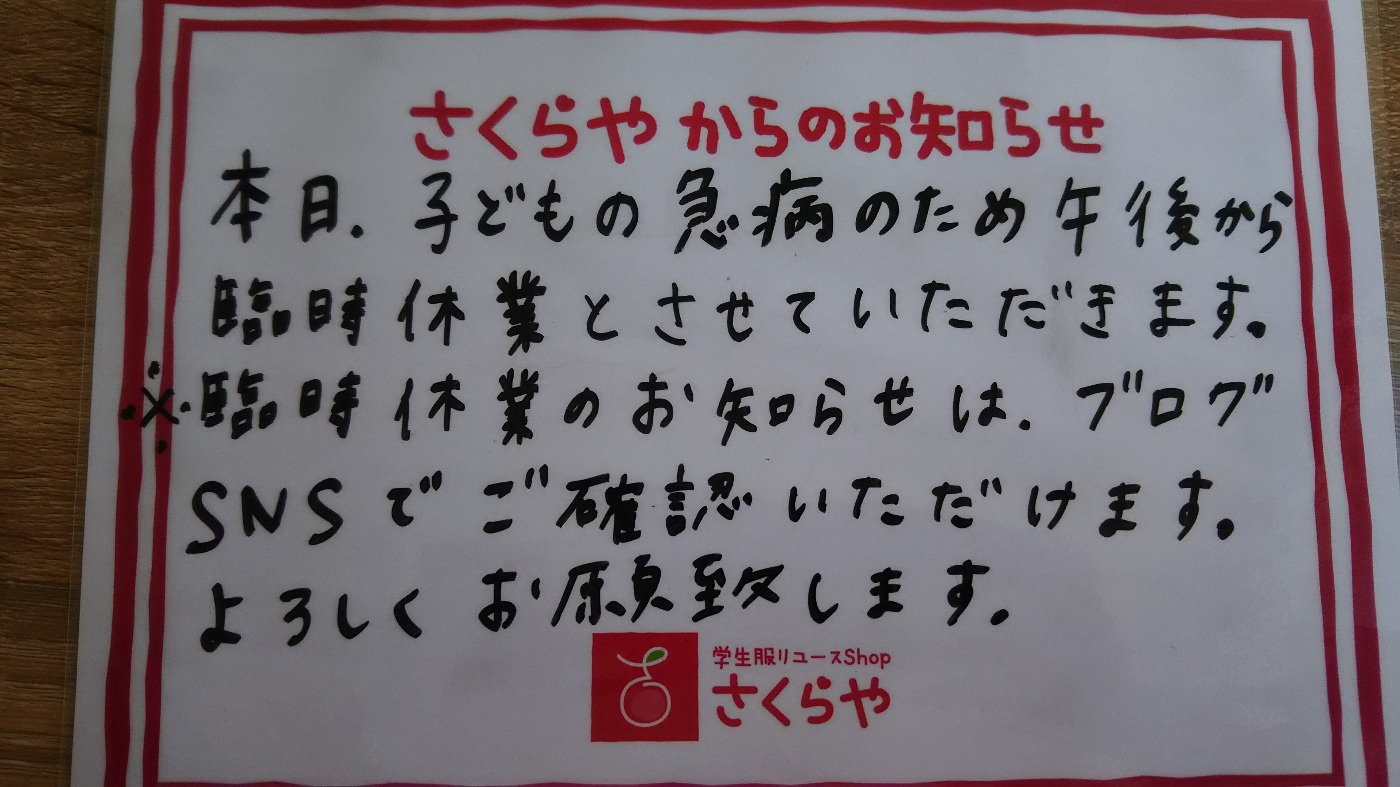 さくらやからのお知らせ
本日.子どもの急病のため午後から
臨時休業とさせていただきます。
※臨時休業のお知らせは.ブログ
SNSでご確認いただけます。
よろしくお願致します。
学生服リユースShop
さくらや